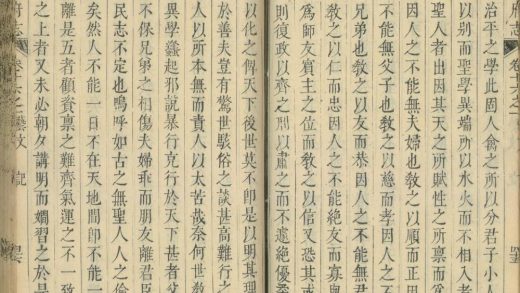 府志 卷十六之一
治平之學此固人禽之所以分君子小人
以別而聖學異端所以水火而不相入者
聖人者出因其天之所賦性之所禀而
因人之不能無夫婦也教之以順而正因
不能無父子也教之以慈而孝因人之
兄弟也教之以友而恭因人之不能無
教之以仁而忠因人之不能絶友而寡與
為師友賓主之位而教之以信又恐其或
則復政以齊之刑以肅之而不遽絶優
以化之俾天下後世莫不卽是以明其理
於善夫豈有驚世駭俗之談甚高難行之
人以所本無而責人以太苦哉奈何世教
異學蠭起邪說暴行克行於天下甚者
不保兄弟之相傷夫婦乖而朋友離君臣
民志不定也嗚呼如古之無聖人人之倫
矣然人不能一日不在天地間卽不能一
離是五者顧資禀之難齊氣運之不一致
之上者又未必朝夕講明而嫺習之於是
府志 卷十六之 藝文 記